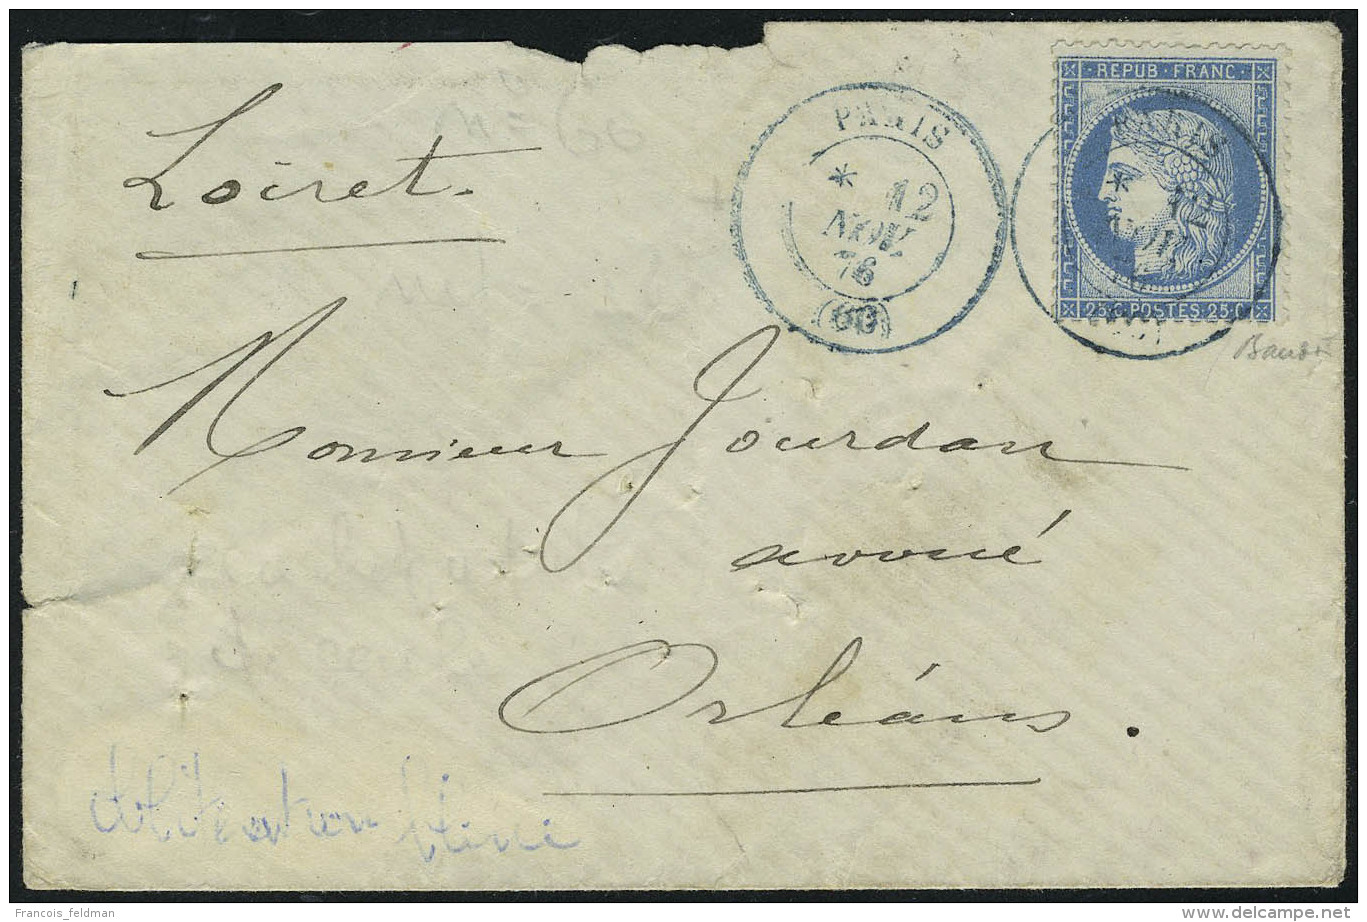 REPUB · FRANC ·
PARIS
* 12
NOV
76
(60)
PARIS
* 12
NOV
25 C POSTES 25 C
Loiret.
Monsieur Jourdan
avoué
Orléans.
Francois_feldman
www.delcampe.net